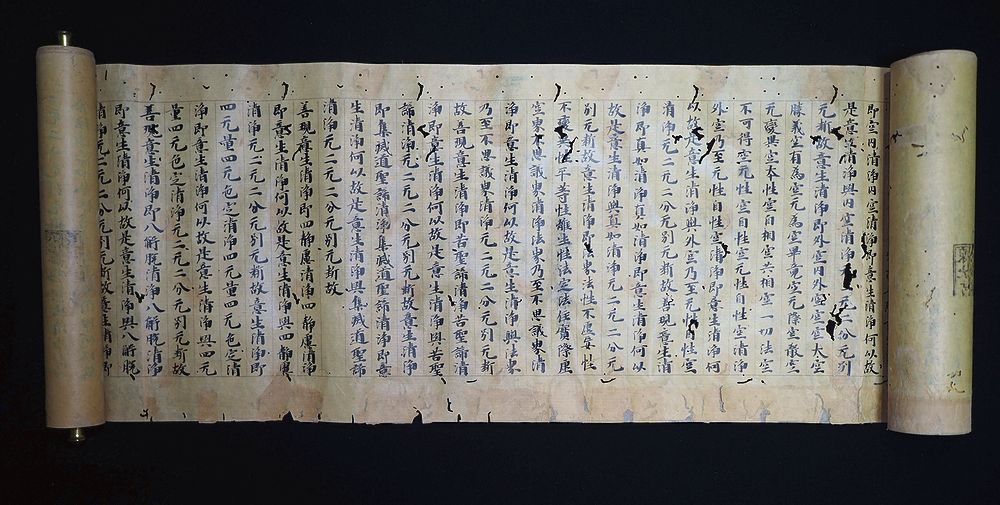 即空内清淨内空清淨即意生清淨何以故
是意生清淨與内空清淨二分无別
无斷故意生清淨即外空内外空空空大空
勝義空有為空无為空畢竟空无際空散空
无變異空本性空自相空共相空一切法空
不可得空无性空自性空无性自性空清淨
外空乃至无性自性空清淨即意生清淨何
以故是意生清淨與外空乃至无性自性空
清淨无二无二分无別无斷故善現意生清
淨即真如清淨真如清淨即意生清淨何以
故是意生清淨與真如清淨无二无二分无
別无斷故意生清淨即法界法性不虛妄性
不變異性平等性離生性法定法住實際虛
空界不思議界清淨法界乃至不思議界清
淨即意生清淨何以故是意生清淨與法界
乃至不思議界清淨无二无二分无別无斷
故善現意生清淨即苦聖諦清淨苦聖諦清
淨即意生清淨何以故是意生清淨與苦聖
諦清淨无二无二分无別无斷故意生清淨
即集滅道聖諦清淨集滅道聖諦清淨即意
生清淨何以故是意生清淨與集滅道聖諦
清淨无二无二分无別无斷故
善現意生清淨即四靜慮清淨四靜慮清淨
即意生清淨何以故是意生清淨與四靜慮
清淨无二无二分无別无斷故意生清淨即
四无量四无色定清淨四无量四无色定清
淨即意生清淨何以故是意生清淨與四无
量四无色定清淨无二无二分无別无斷故
善現意生清淨即八解脫清淨八解脫清淨
即意生清淨何以故是意生清淨與八解脫
清淨无二无二分无別无斷故意生清淨即